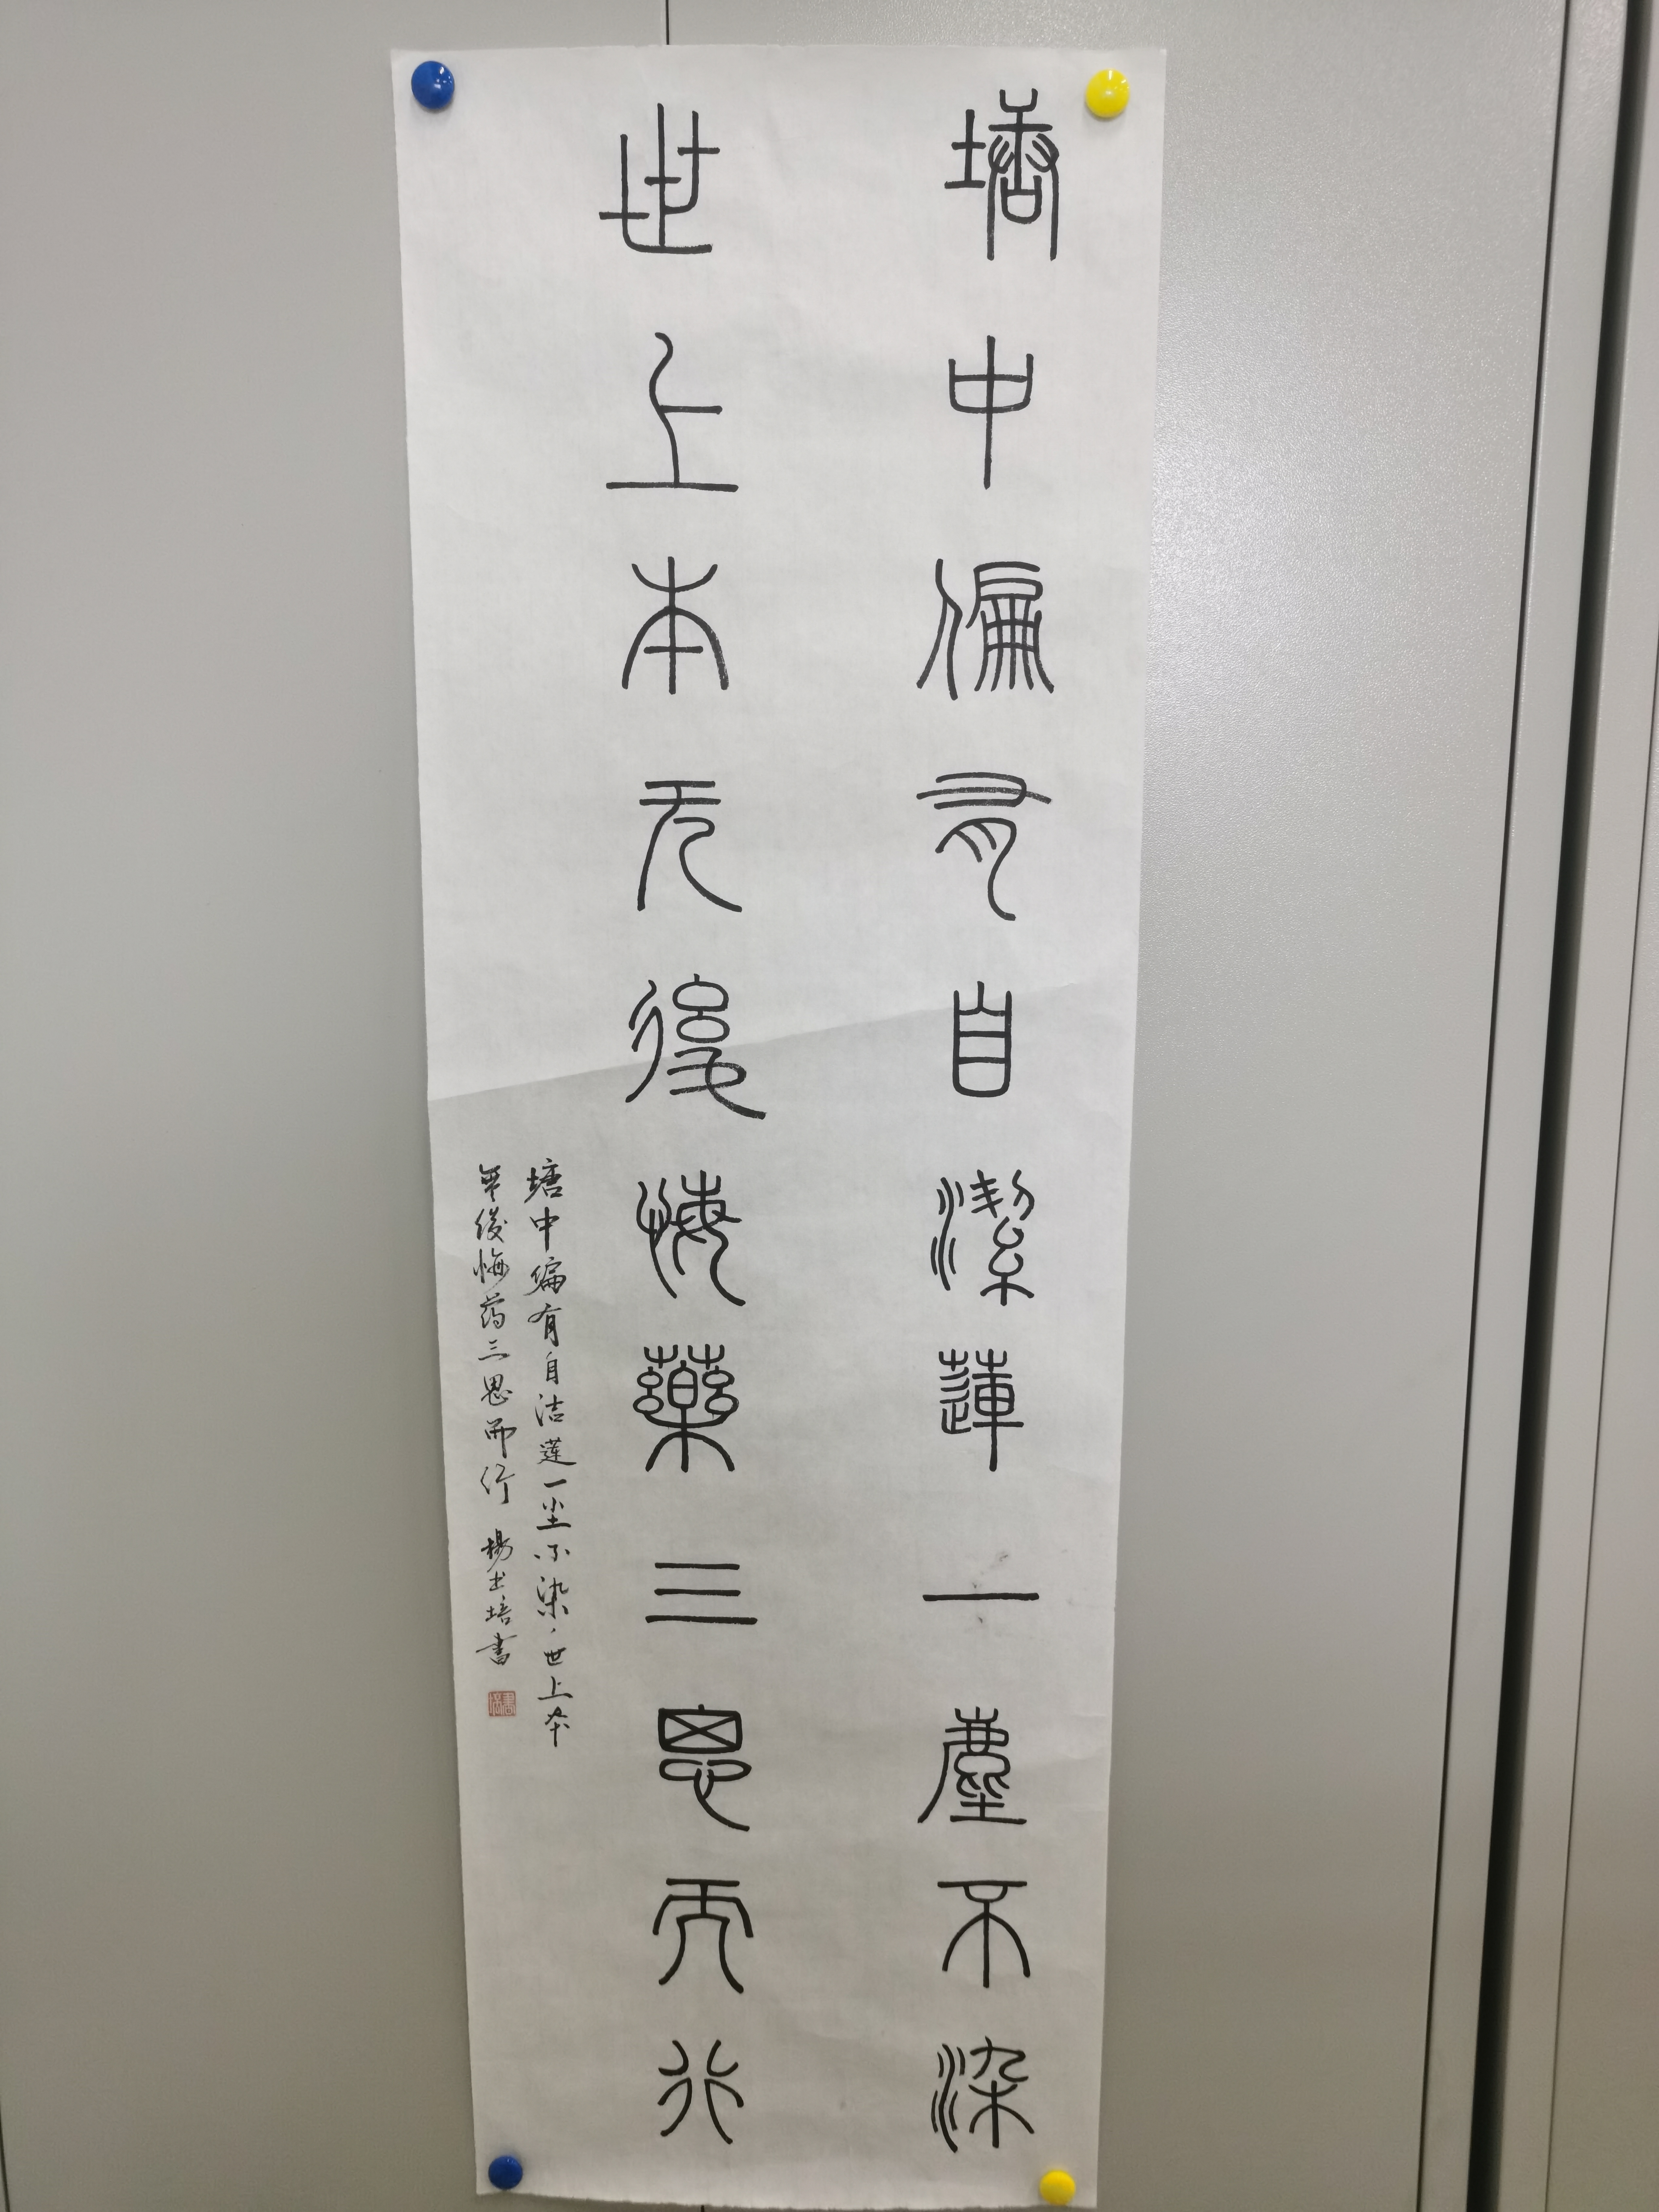 塘中偏有自潔蓮一塵不染
世上本无後悔藥三思而行
塘中偏有自洁莲一尘不染世上本
無後悔药三思而行 楊士培書